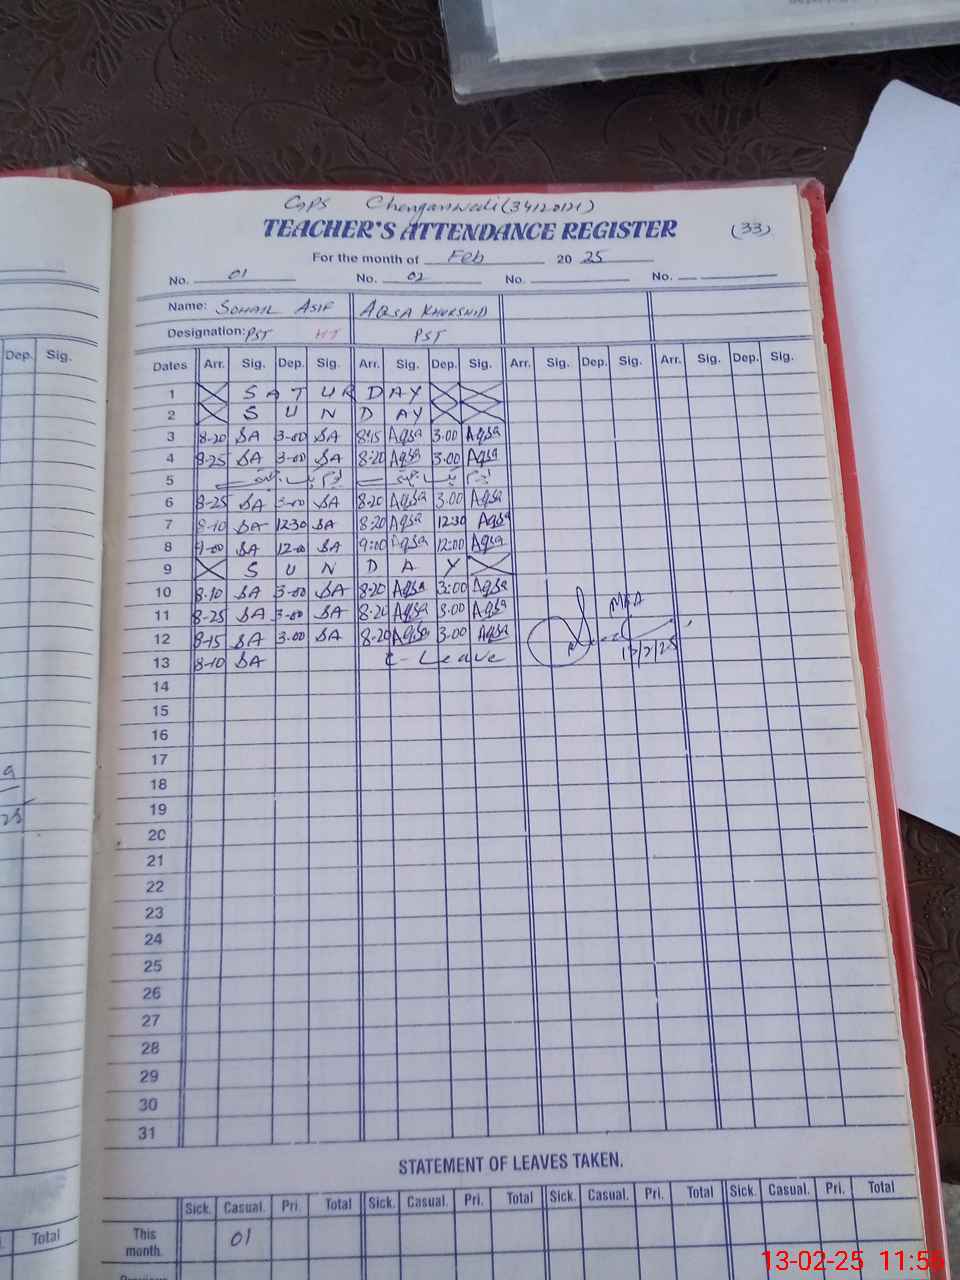 GPS Chenganwali (34120121)
TEACHER'S ATTENDANCE REGISTER (33)
For the month of Feb 20 25
No. 01 No. 02 No. No.
Name: SOHAIL ASIF AQSA KHURSHID
Designation: PST HT PST
Dep. Sig.
Dates Arr. Sig. Dep. Sig. Arr. Sig. Dep. Sig. Arr. Sig. Dep. Sig. Arr. Sig. Dep. Sig.
1 SATURDAY
2 SUNDAY
3 8-20 SA 3-00 SA 8:15 Aqsa 3.00 Aqsa
4 8-25 SA 3-00 SA 8:20 Aqsa 3.00 Aqsa
5
6 8-25 SA 3-00 SA 8-20 Aqsa 3.00 Aqsa
7 8-10 SA 12-30 SA 8:20 Aqsa 12:30 Aqsa
8 9-00 SA 12-00 SA 9:00 Aqsa 12:00 Aqsa
9 SUNDAY
10 8-10 SA 3-00 SA 8-20 Aqsa 3:00 Aqsa
11 8-25 SA 3-00 SA 8-20 Aqsa 3.00 Aqsa
12 8-15 SA 3.00 SA 8-20 Aqsa 3.00 Aqsa
13 8-10 SA C-Leave
14
15
16
17
18
19
20
21
22
23
24
25
26
27
28
29
30
31
STATEMENT OF LEAVES TAKEN.
Sick. Casual. Pri. Total Sick. Casual. Pri. Total Sick. Casual. Pri. Total Sick. Casual. Pri. Total
Total This month. 01
13-02-25 11:56